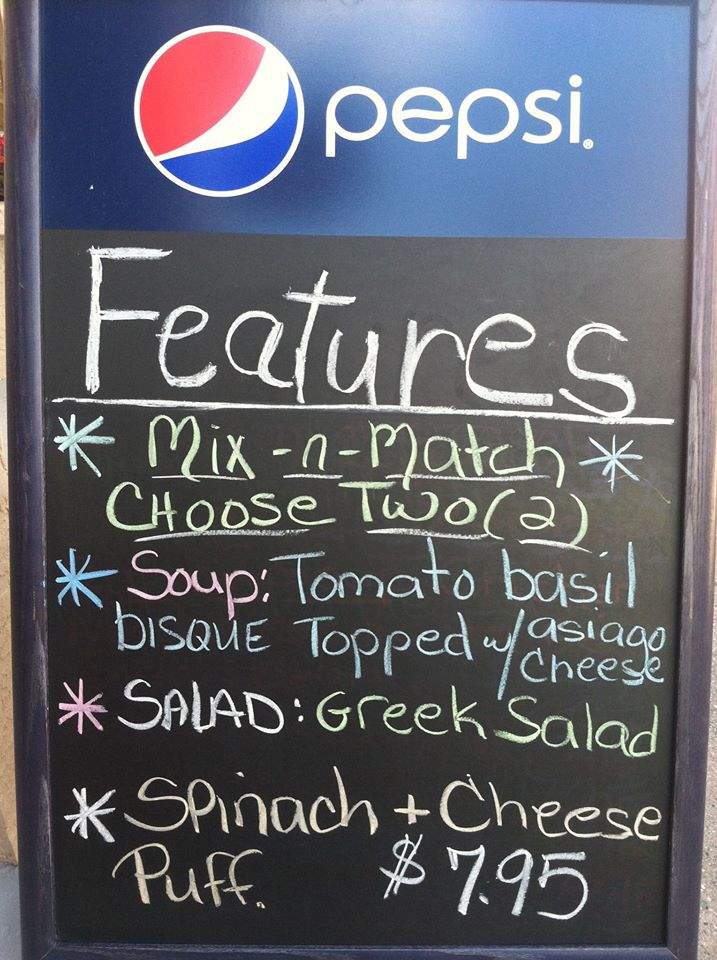 pepsi
Features
* Mix-n-Match *
CHOOSE Two (2)
* Soup: Tomato basil
bISQUE Topped w/ asiago
Cheese
* SALAD: Greek Salad
* SPinach + Cheese
Puff. $7.95